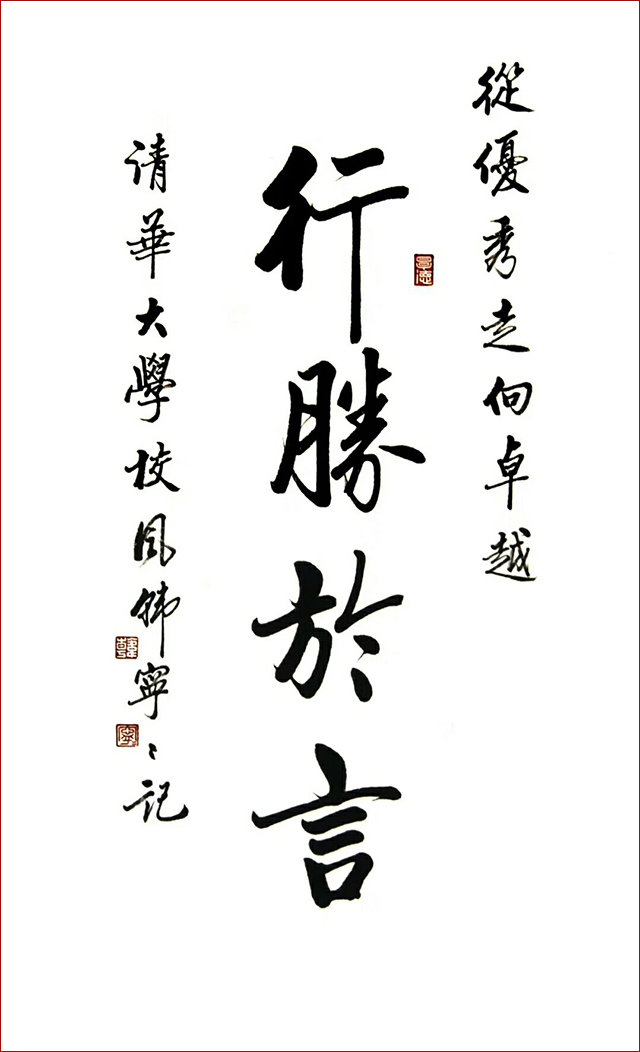 從優秀走向卓越
行勝於言
清華大學校风韩寧〻記